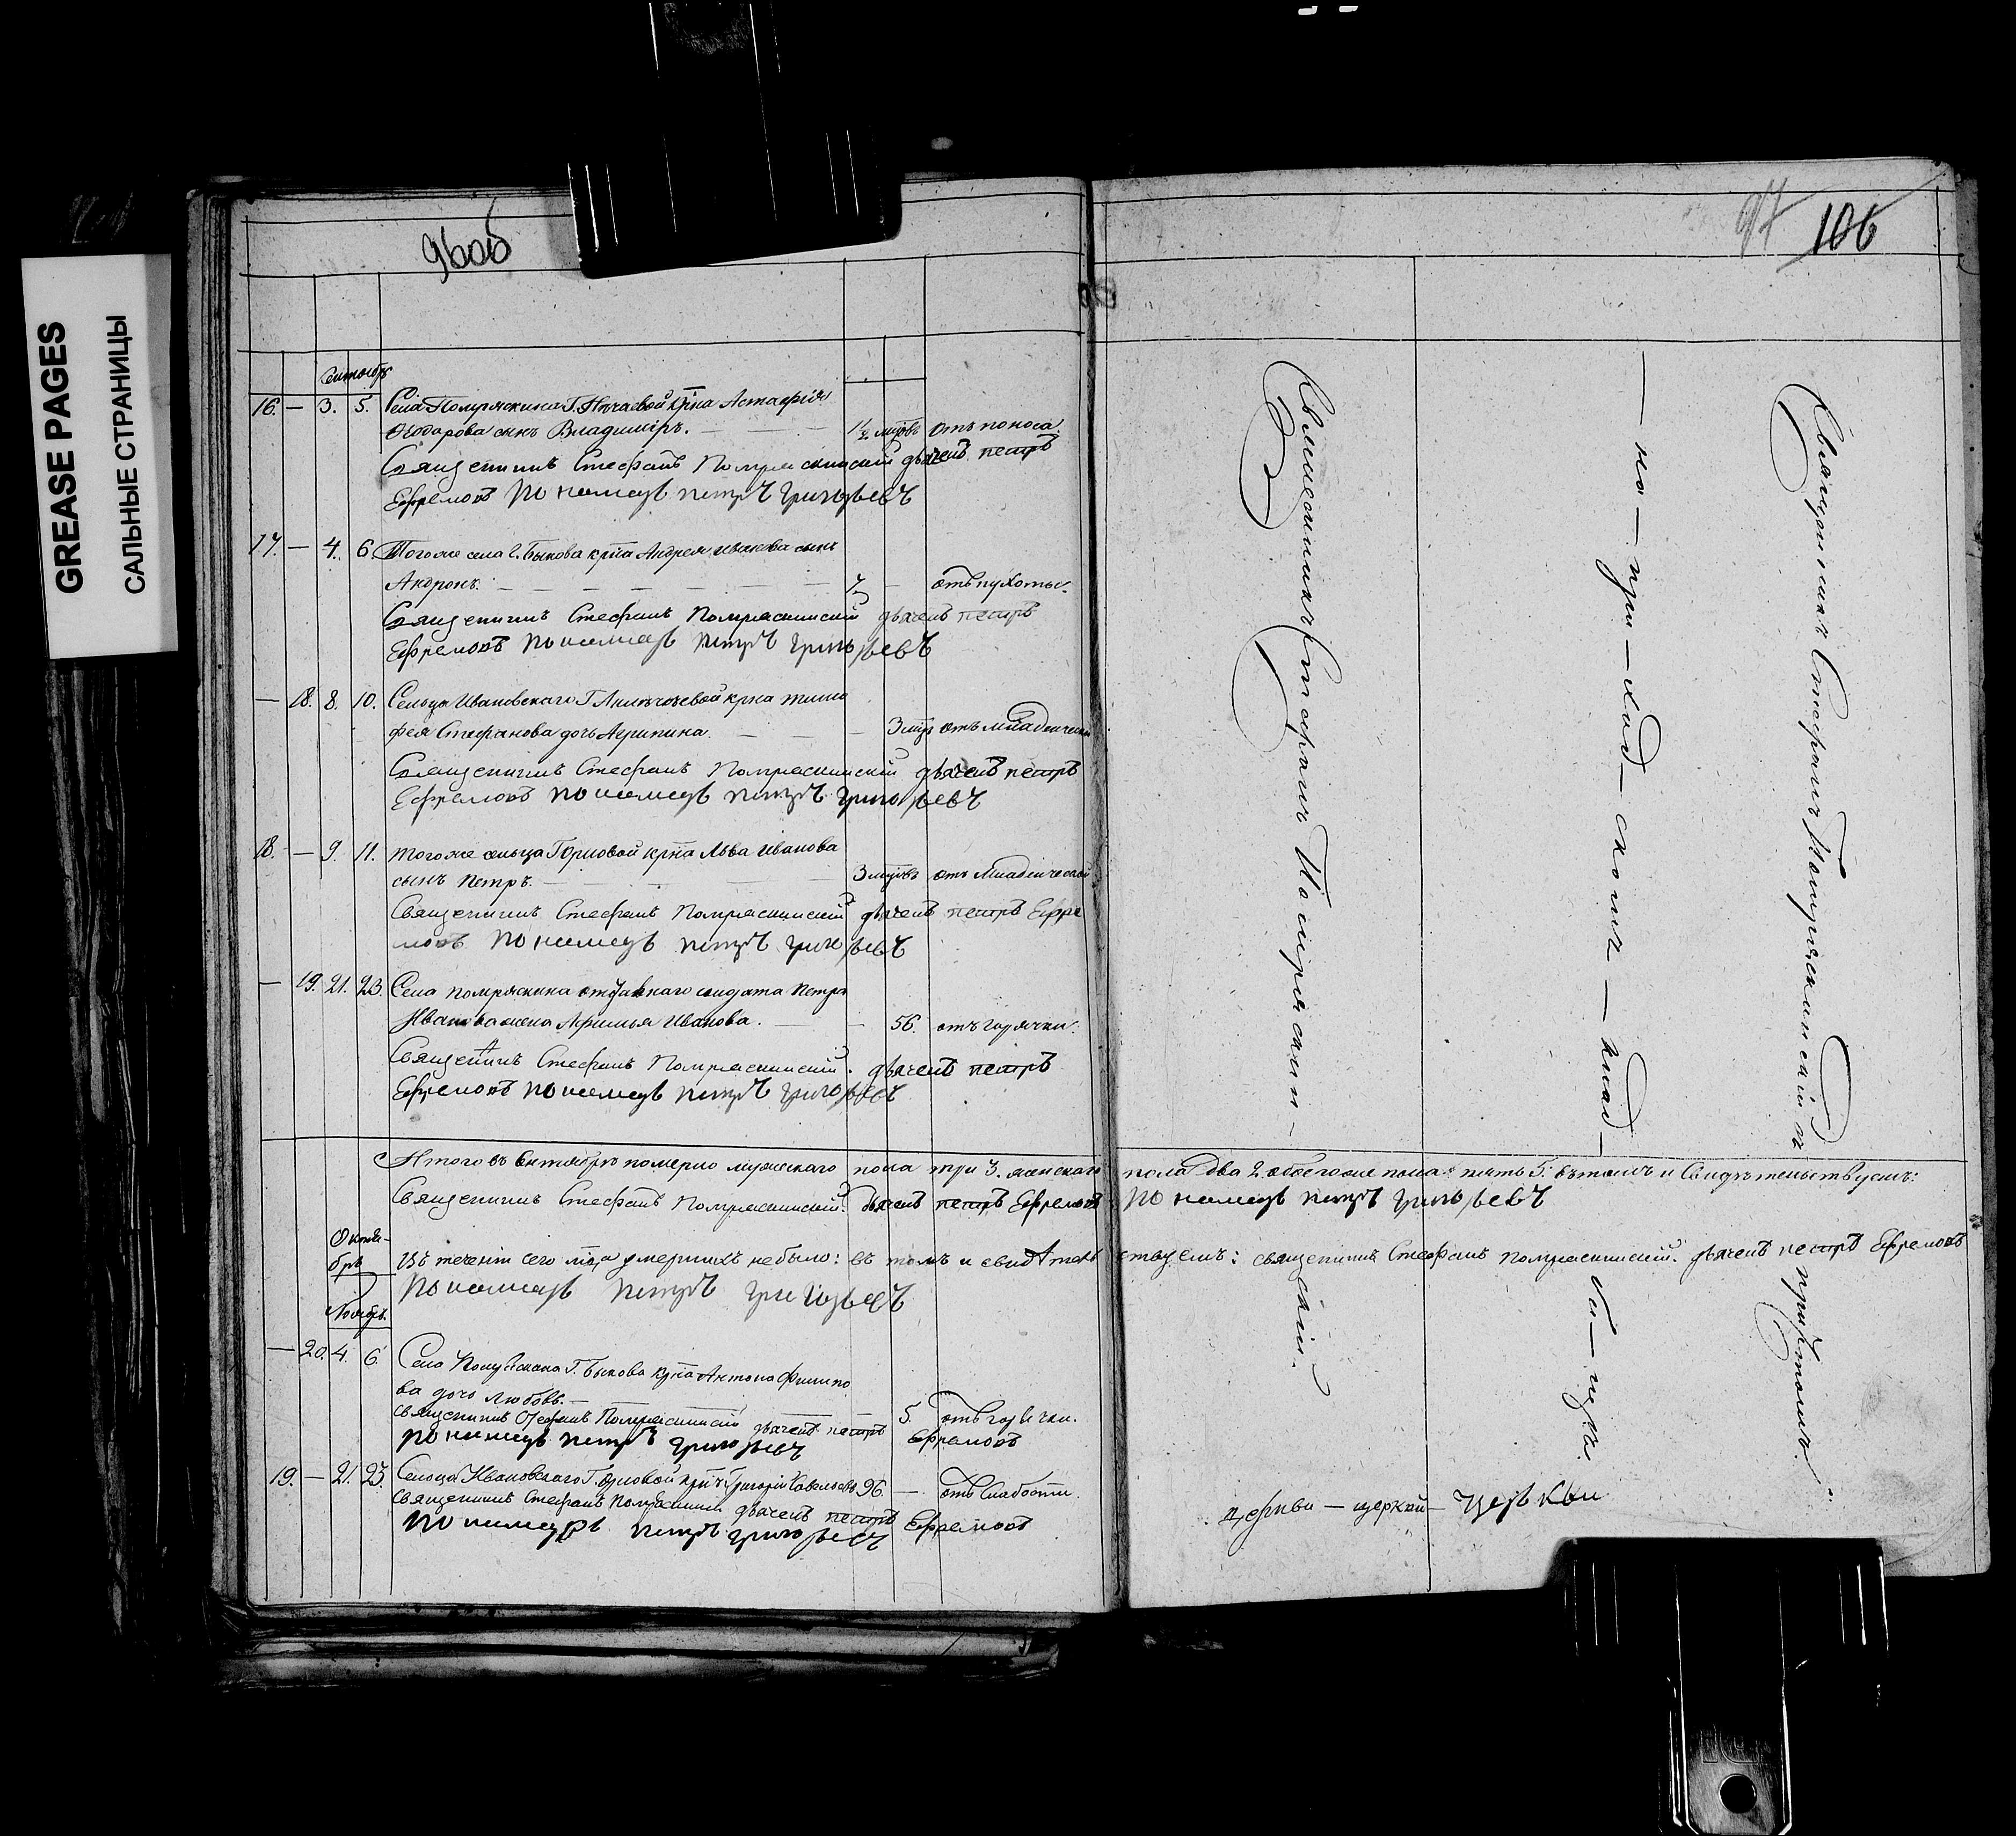 GREASE PAGES
САЛЬНЫЕ СТРАНИЦЫ
96об
97 106
Сентябрь
16. — 3. 5. Села Помряскина Г. Нечаевой крна Астафія
Ѳеодорова сынъ Владиміръ. — 1½ мцовъ отъ поноса.
Священникъ Стефанъ Помряскинскій дьячекъ петръ
Ефремовъ пономарь петръ григорьевъ
17. — 4. 6. Тогоже села г. Быкова крна Андрея иванова сынъ
Андронъ. — 7. — отъ пухоты.
Священникъ Стефанъ Помряскинскій дьячекъ петръ
Ефремовъ пономарь петръ григорьевъ
— 18. 8. 10. Сельца Ивановскаго Г. крна тимо
фея Стефанова дочь Агрипина. — 3 мцъ отъ младенческой
Священникъ Стефанъ Помряскинскій дьячекъ петръ
Ефремовъ пономарь петръ григорьевъ
18. — 9. 11. тогоже сельца Г. Орловой крна Льва Иванова
сынъ Петръ. — 3 мцовъ отъ младенческой
Священникъ Стефанъ Помряскинскій дьячекъ петръ Ефре
мовъ пономарь петръ григорьевъ
— 19. 21. 23. Села помряскина отставнаго солдата Петра
Иванова жена Афимья Иванова. — 56. отъ горячки.
Священникъ Стефанъ Помряскинскій. дьячекъ петръ
Ефремовъ пономарь петръ григорьевъ
Итого въ сентябрѣ померло мужескаго пола три 3. женскаго пола два 2. обоегоже пола пять 5. въ томъ и свидѣтельствуемъ:
Священникъ Стефанъ Помряскинскій. дьячекъ петръ Ефремовъ пономарь петръ григорьевъ
Октя-
брь
Въ теченіи сего мца умершихъ небыло: въ томъ и свидѣтельствуемъ: священникъ Стефанъ помряскинскій. дьячекъ петръ Ефремовъ
пономарь петръ григорьевъ
Ноябрь.
— 20. 4. 6. Села Помряскина Г. Быкова крна Антона Филипо
ва дочь Любовь. — 5. отъ горячки.
священникъ Стефанъ Помряскинскій дьячекъ петръ Ефремовъ
пономарь петръ григорьевъ
19. — 21. 23. Сельца Ивановскаго Г. Орловой крнъ Григорій Савельевъ 96. — отъ слабости.
священникъ Стефанъ Помряскинскій дьячекъ петръ Ефремовъ
пономарь петръ григорьевъ
Священникъ Стефанъ Помряскин-скій.
— по — при — ход — скому —
Священникъ Стефанъ Помряскинскій съ причтомъ.
церкви — церкви — церкви